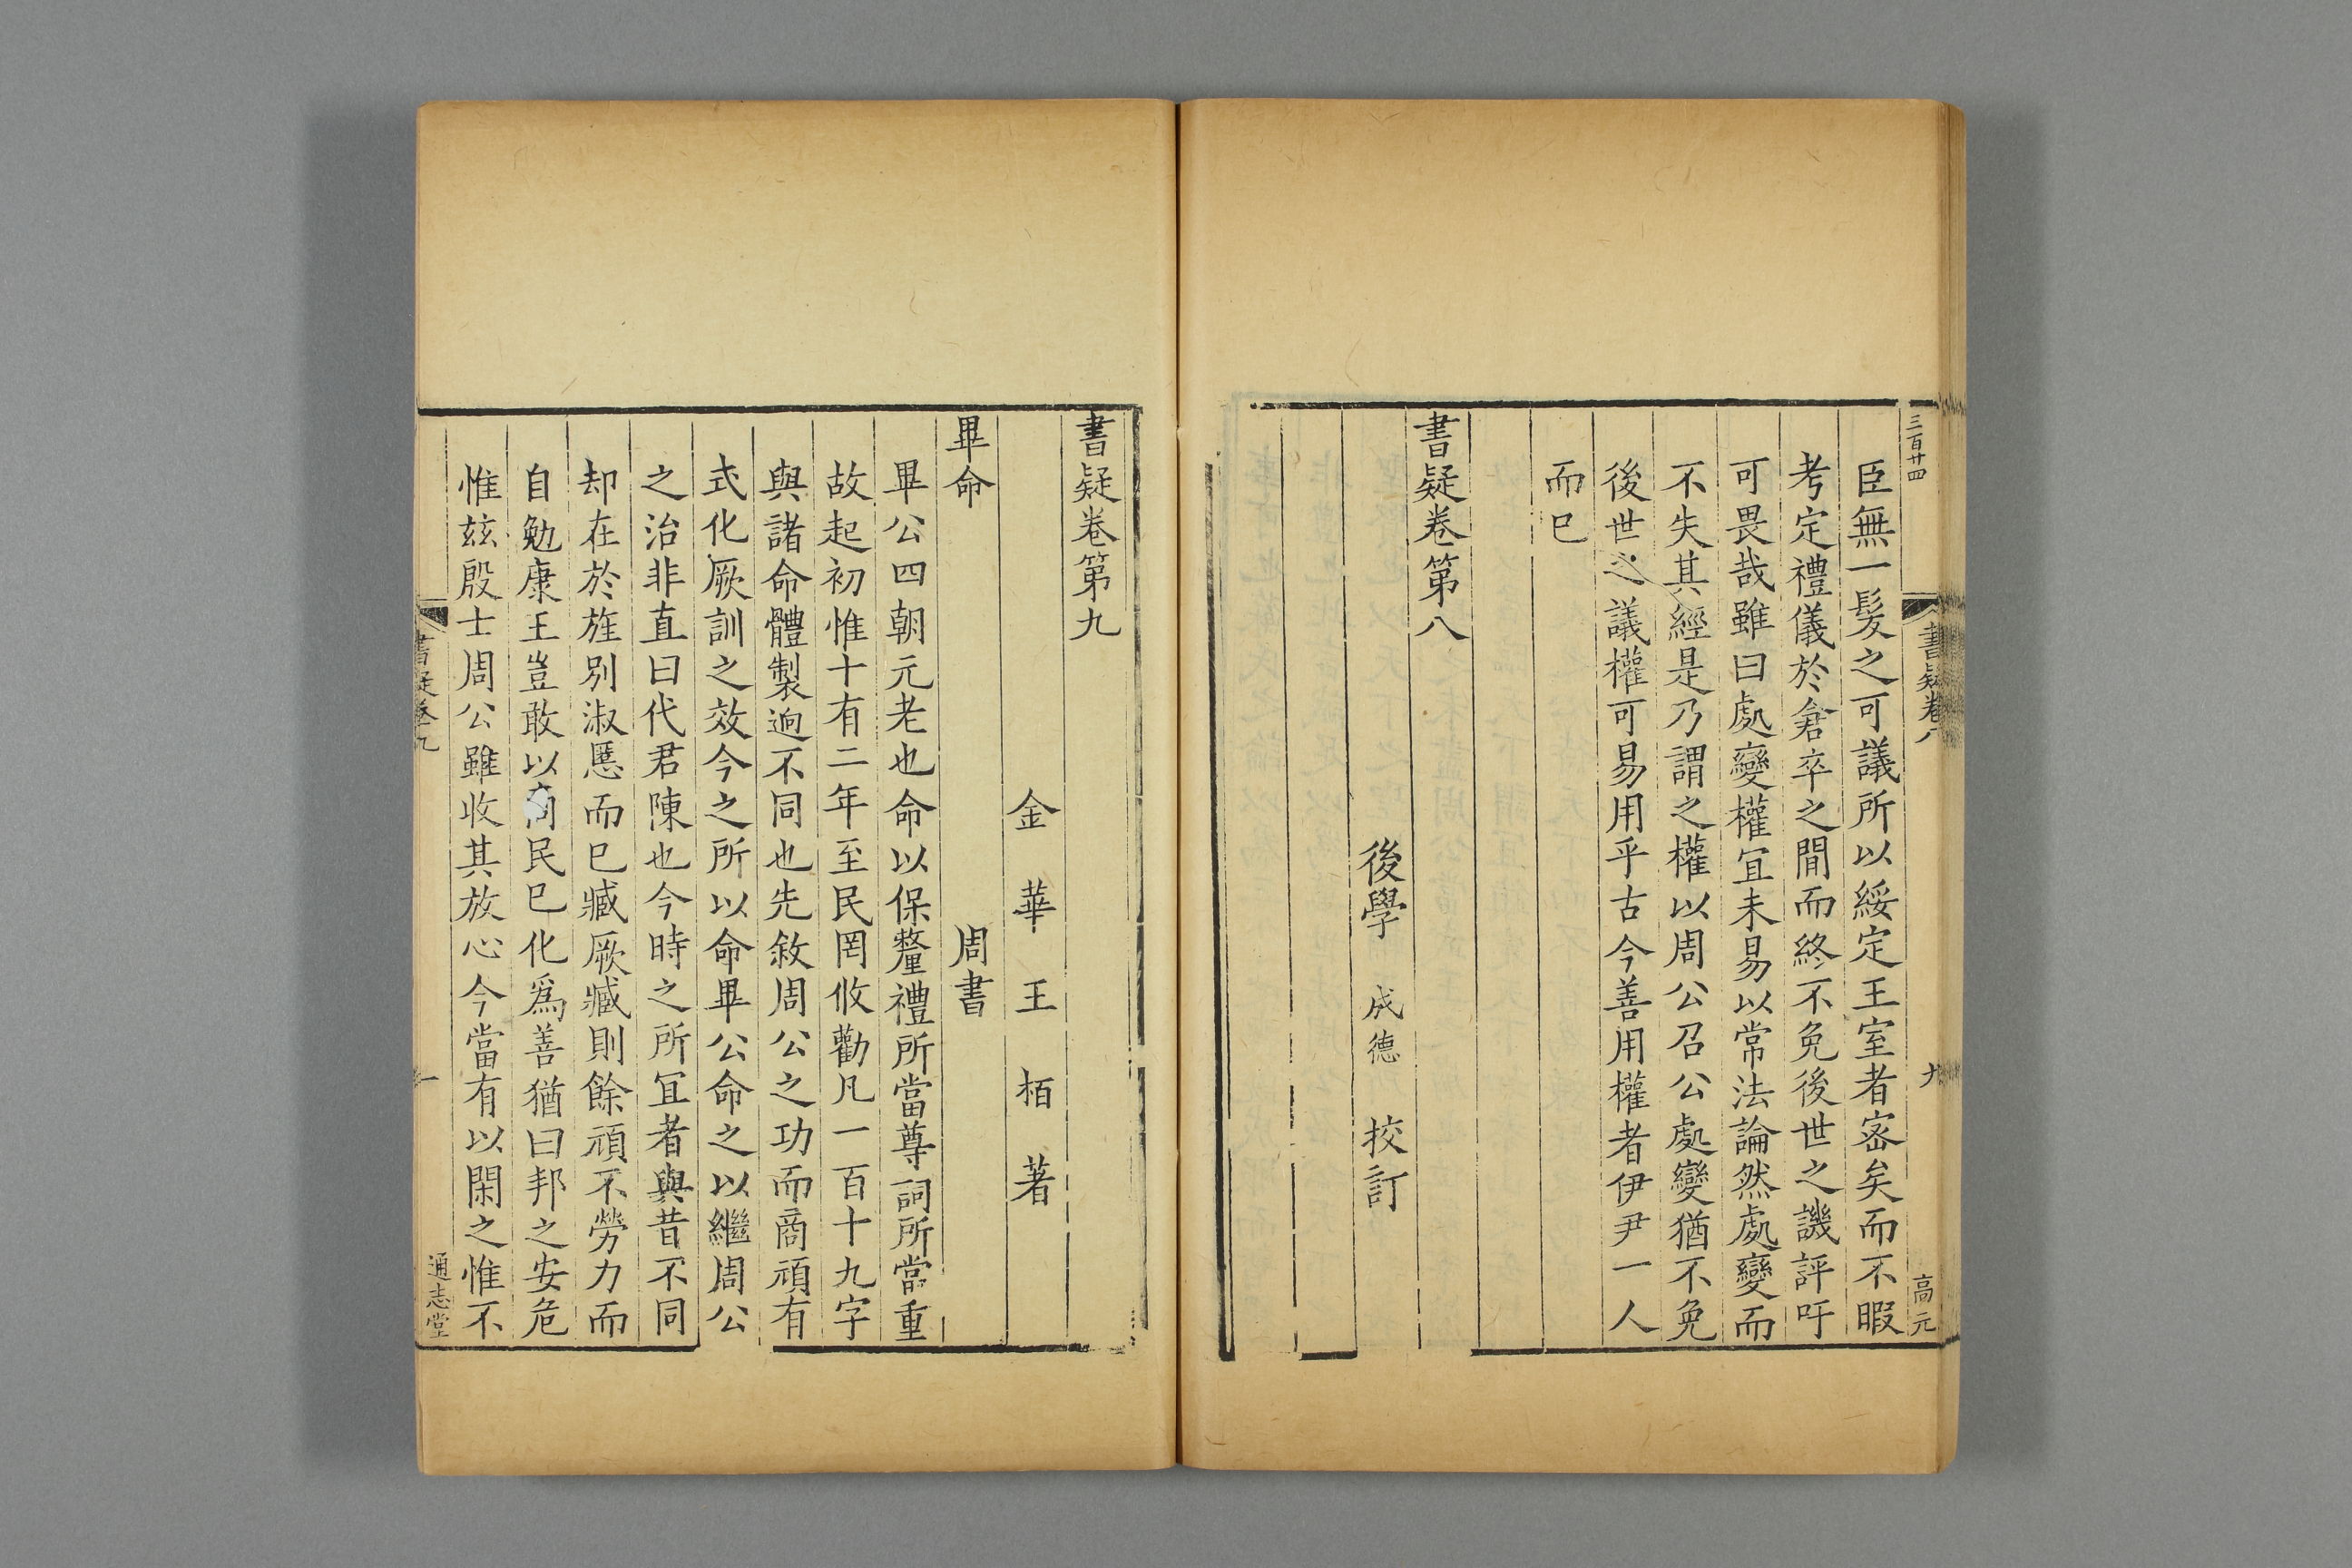 三百廿四
書疑卷八
九
高元
臣無一髮之可議所以綏定王室者宻矣而不暇
考定禮儀於倉卒之間而終不免後世之譏評吁
可畏哉雖曰處變權宜未易以常法論然處變而
不失其經是乃謂之權以周公召公處變猶不免
後世之議權可易用乎古今善用權者伊尹一人
而巳
書疑卷第八
後學 成德 挍訂
書疑卷第九
金華王栢著
畢命 周書
畢公四朝元老也命以保釐禮所當尊詞所當重
故起初惟十有二年至民罔攸勸凡一百十九字
與諸命體製逈不同也先敘周公之功而商頑有
式化厥訓之效今之所以命畢公命之以繼周公
之治非直曰代君陳也今時之所宜者與昔不同
却在於旌別淑慝而巳臧厥臧則餘頑不勞力而
自勉康王豈敢以商民巳化爲善猶曰邦之安危
惟玆殷士周公雖收其放心今當有以閑之惟不
書疑卷九
一
通志堂